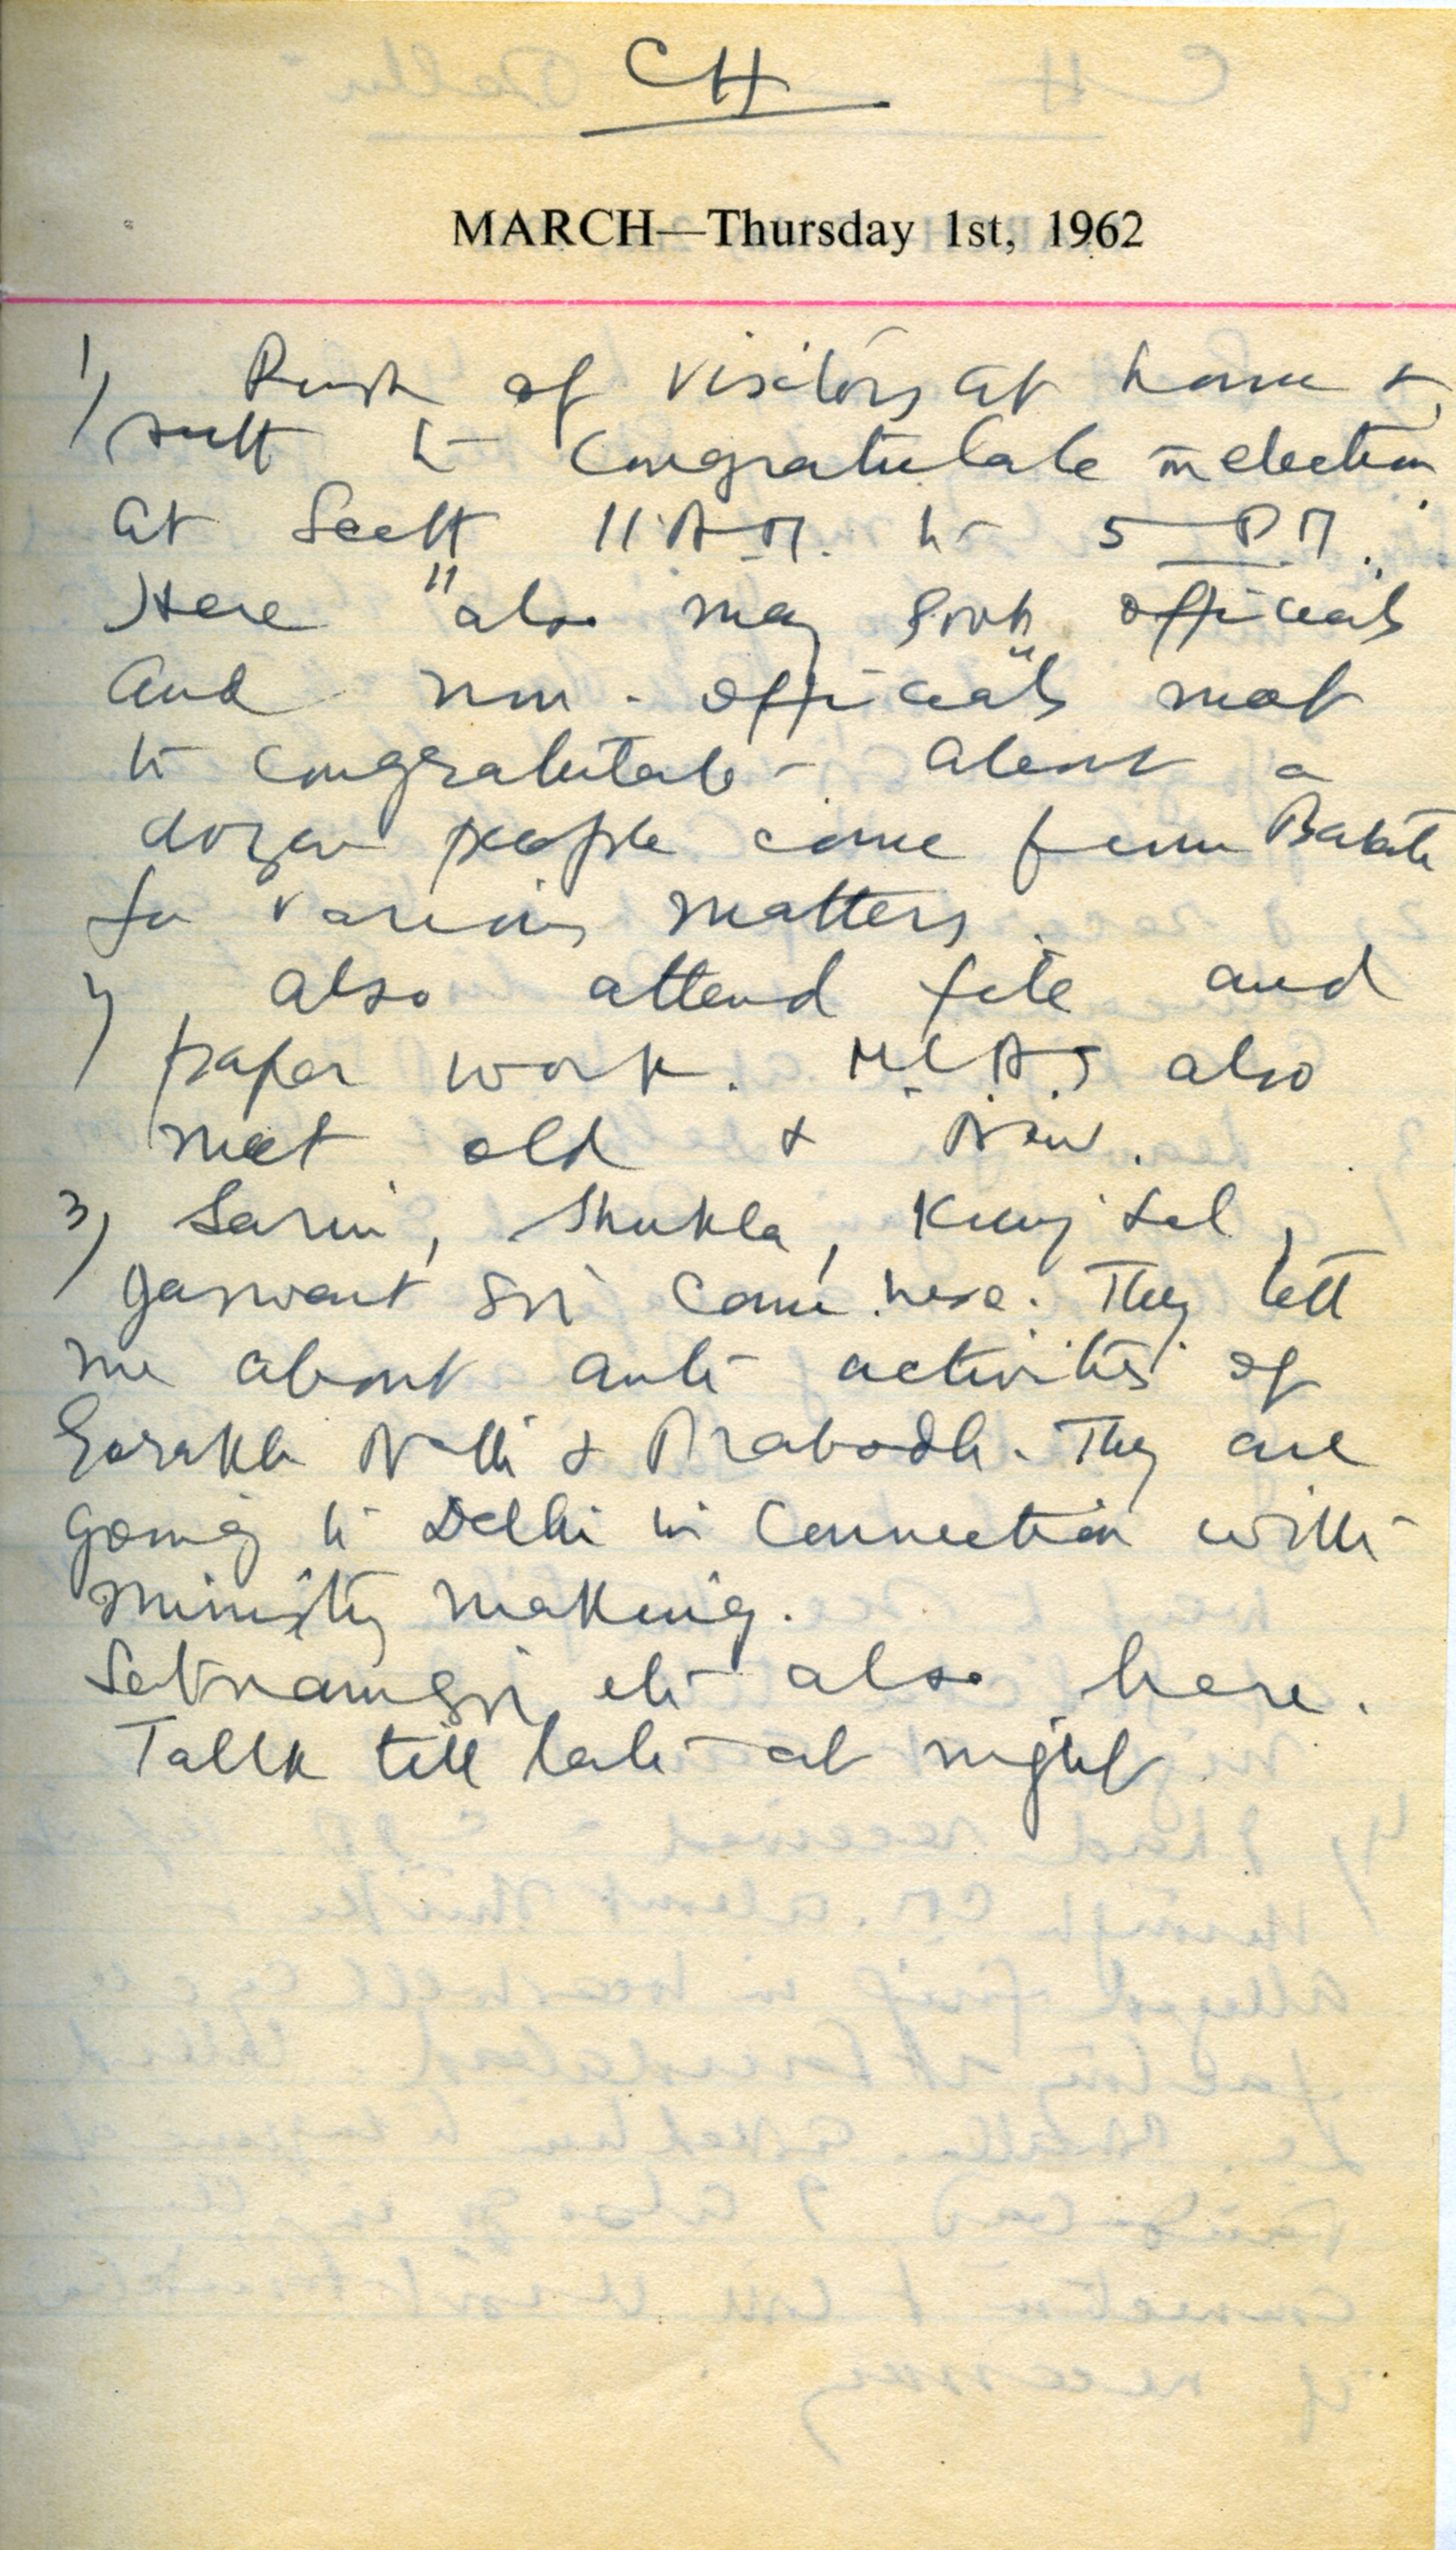 CH
MARCH—Thursday 1st, 1962
1) Rush of visitors at home &
sectt to congratulate on election
at Sectt 11 A.M. to 5 P.M.
Here also many Govt officials
and non-officials meet
to congratulate - about a
dozen people come from Batala
for various matters.
2) also attend file and
paper work. MLAS also
meet old & New.
3) Sarin, Shukla, Kunj Lal,
Jaswant Sin come here. They tell
me about anti activities of
Gorakh Nath & Prabodh. They are
going to Delhi in connection with
ministry making.
Satnamsin etc also here.
Tallk till late at night